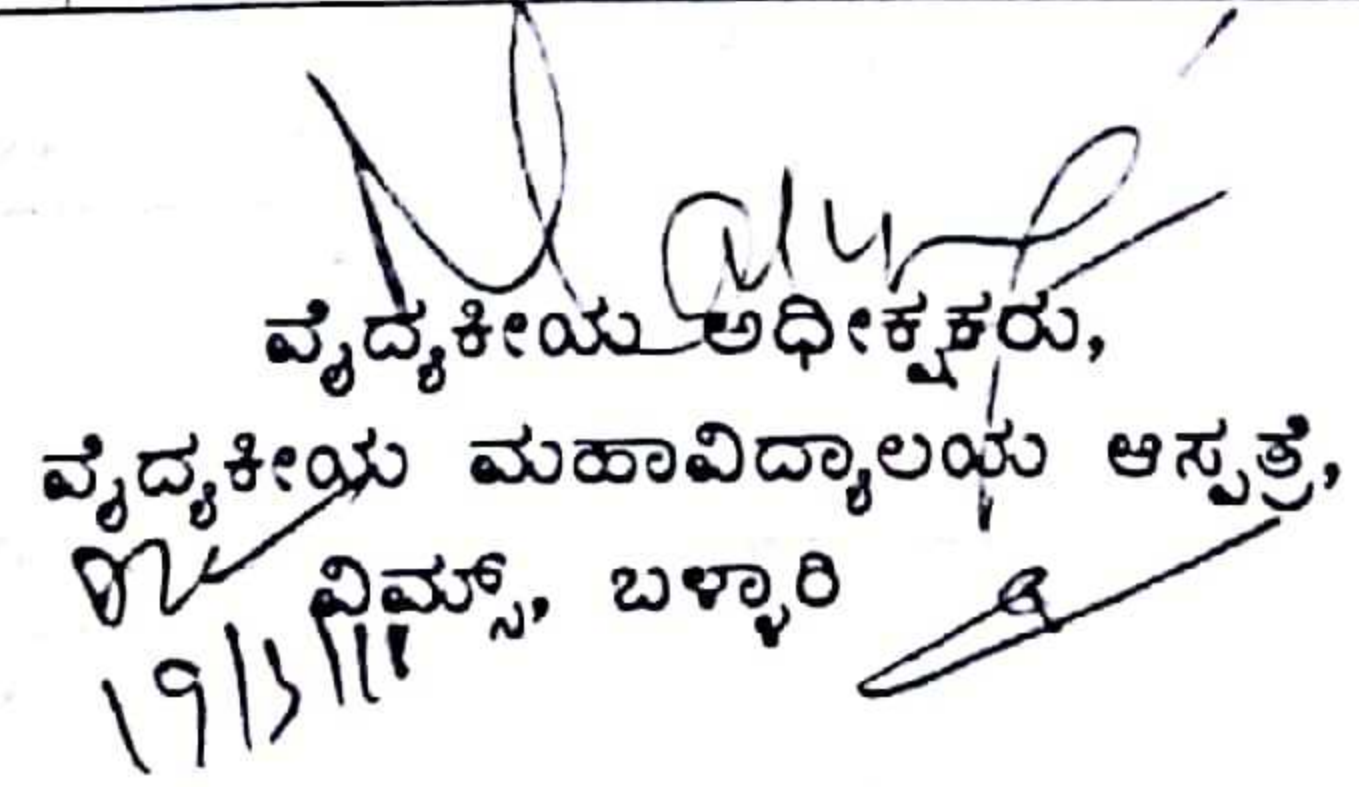 ವೈದ್ಯಕೀಯ ಅಧೀಕ್ಷಕರು,
ವೈದ್ಯಕೀಯ ಮಹಾವಿದ್ಯಾಲಯ ಆಸ್ಪತ್ರೆ,
ವಿಮ್ಸ್, ಬಳ್ಳಾರಿ